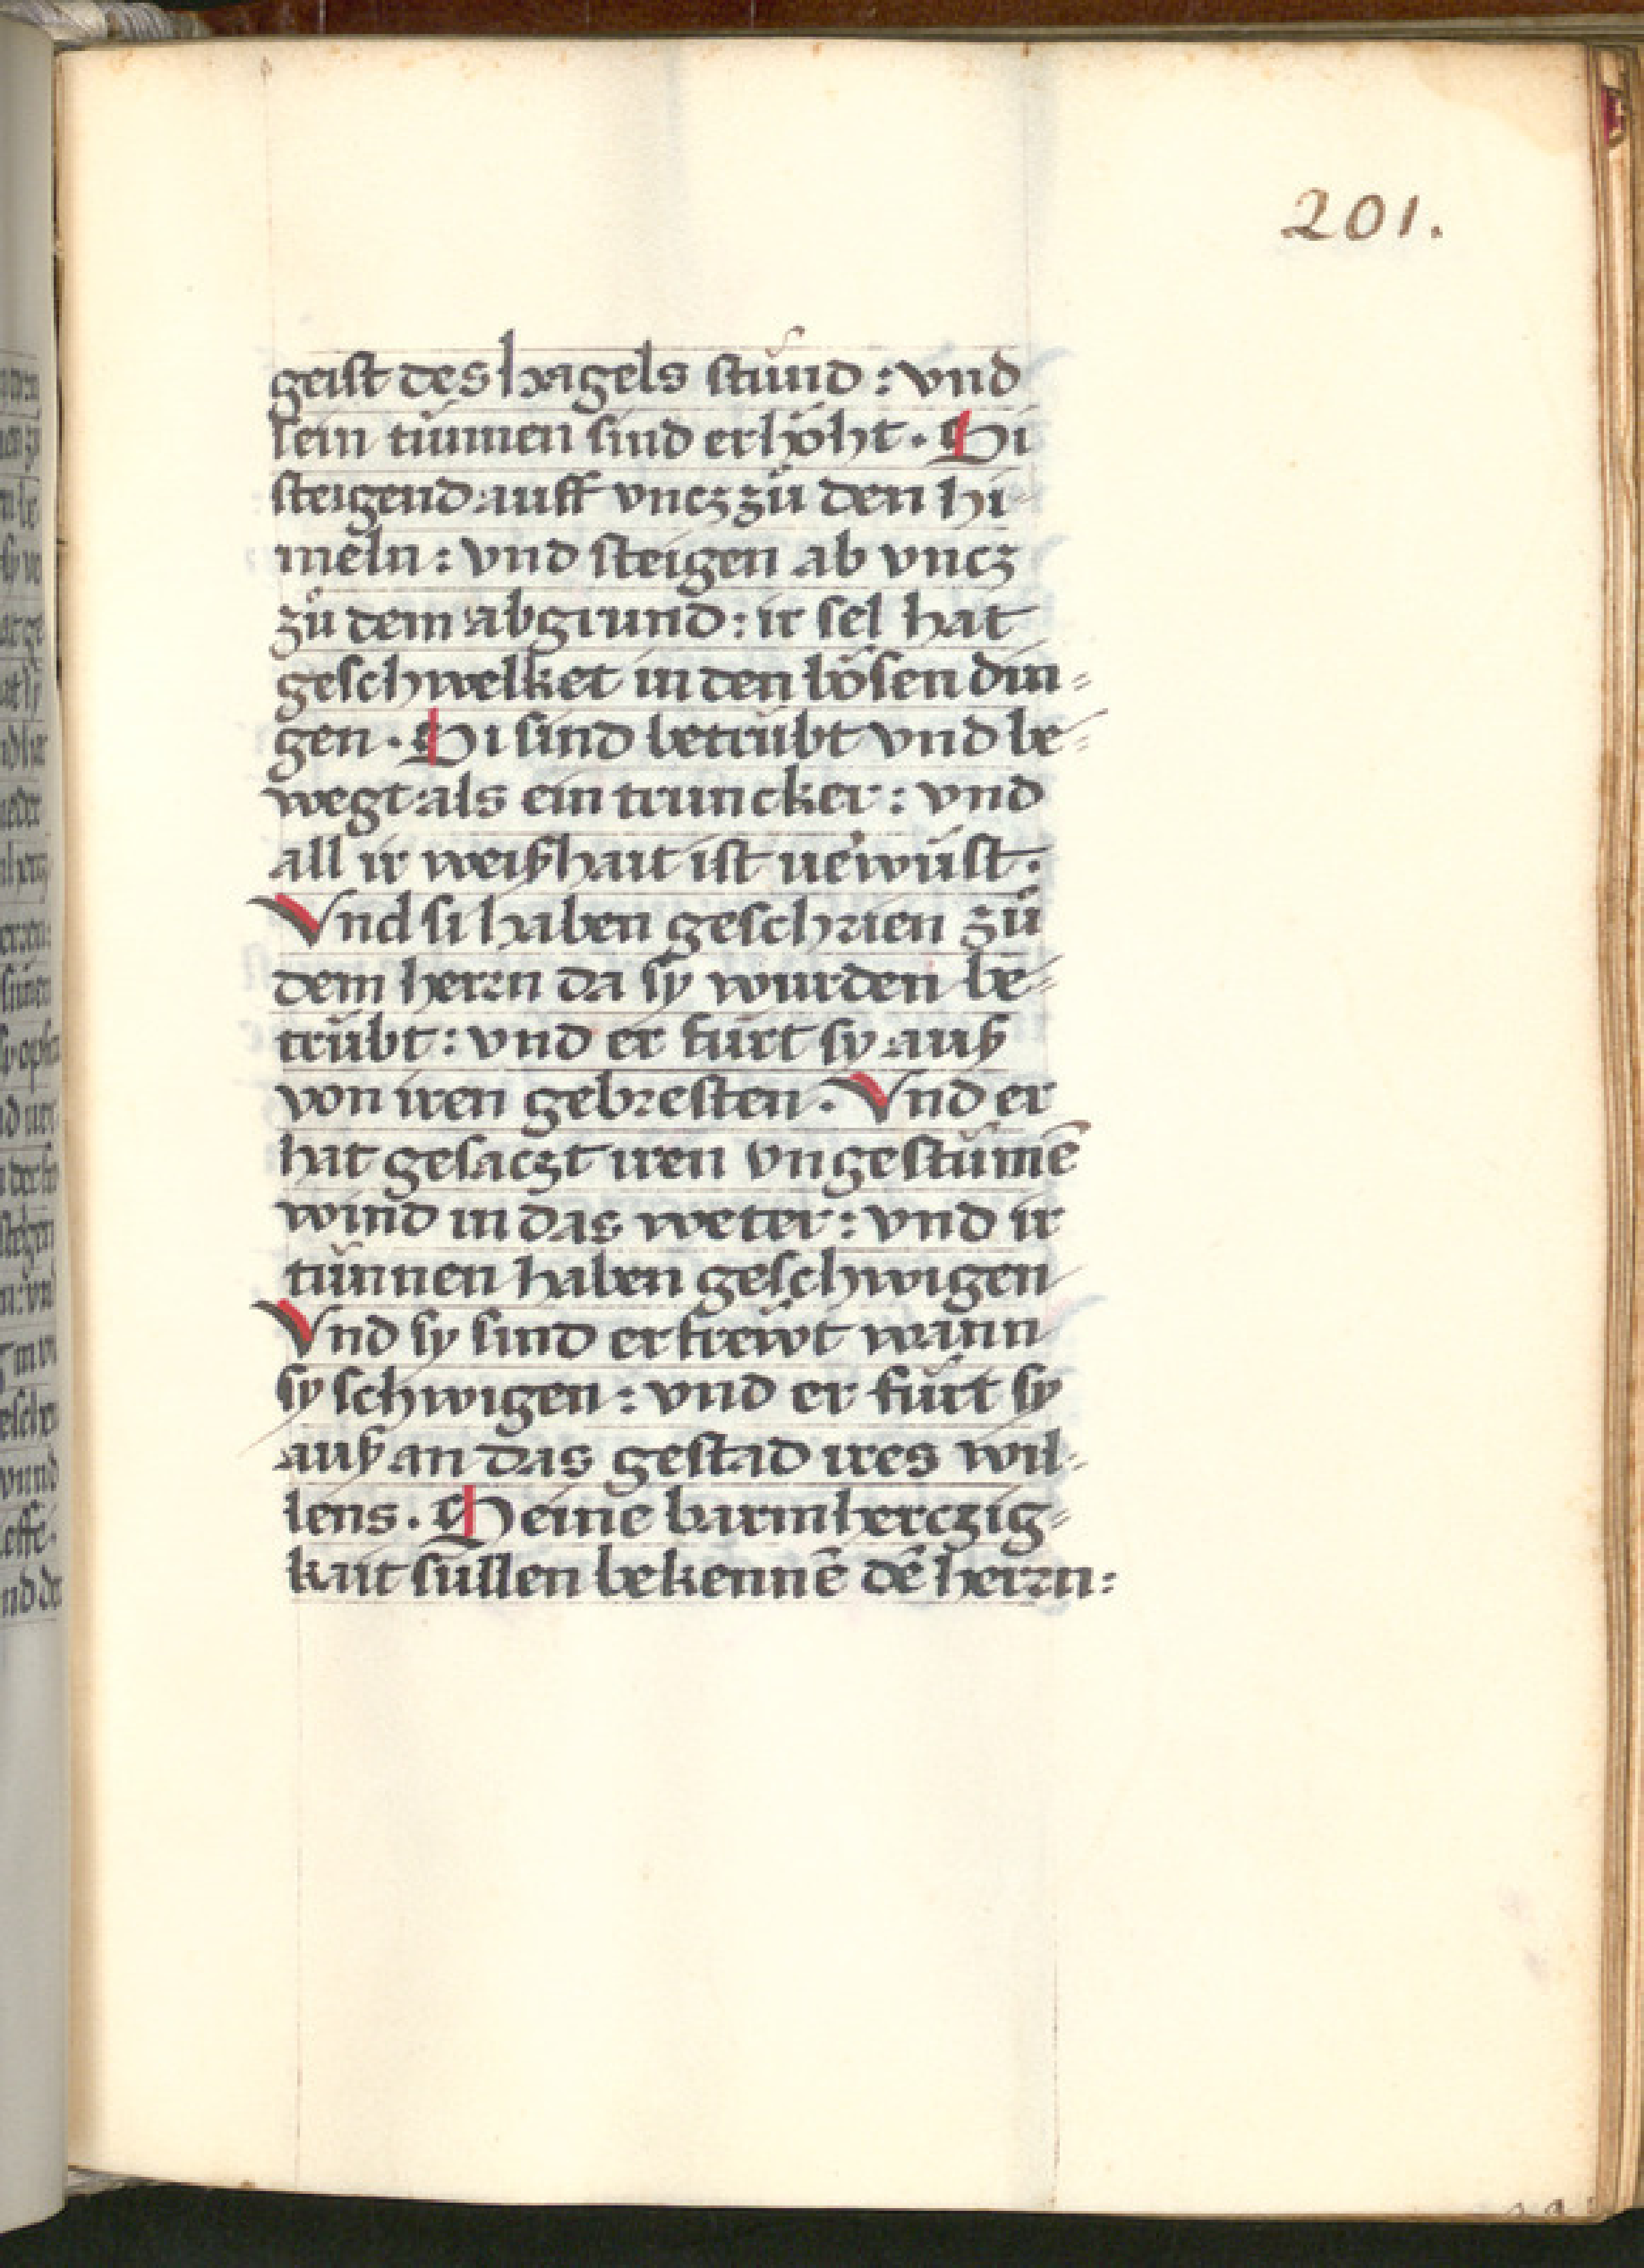 201.
geist des hagels stůnd : vnd
sein tünnen sind erhöht . Si
steigend auff vncz zů den hi
meln : vnd steigen ab vncz
zů dem abgrund : ir sel hat
geschwelket in den bösen din=
gen . Si sind betrübt vnd be=
wegt als ein truncker : vnd
all ir weißhait ist v̓wüst .
Vnd si haben geschrien zů
dem herrn da sy wurden be=
trübt : vnd er fürt sy auß
von iren gebresten . Vnd er
hat gesaczt iren vngestümē
wind in das weter : vnd ir
tünnen haben geschwigen
Vnd sy sind erfrewt wann
sy schwigen : vnd er fürt sy
auß an das gestad ires wil=
lens . Seine barmherczig=
kait süllen bekennē dē herrn :